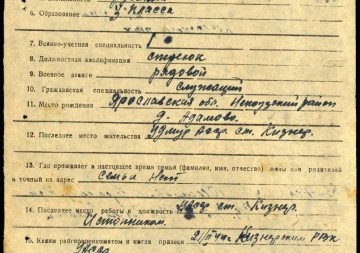 6. Образование 4 класса
7. Военно-учетная специальность 1
8. Должностная квалификация стрелок
9. Военное звание рядовой
10. Гражданская специальность служащий
11. Место рождения Ярославская обл. Некоузский район
д. Адамово.
12. Последнее место жительства Удмур. АССР. ст. Кизнер.
13. Где проживает в настоящее время семья (фамилия, имя, отчество) жены или родителей
и точный их адрес Семьи Нет
14. Последнее место работы и должность ст. Кизнер.
Истопником.
15. Каким райгорвоенкоматом и когда призван Кизнерским РВК